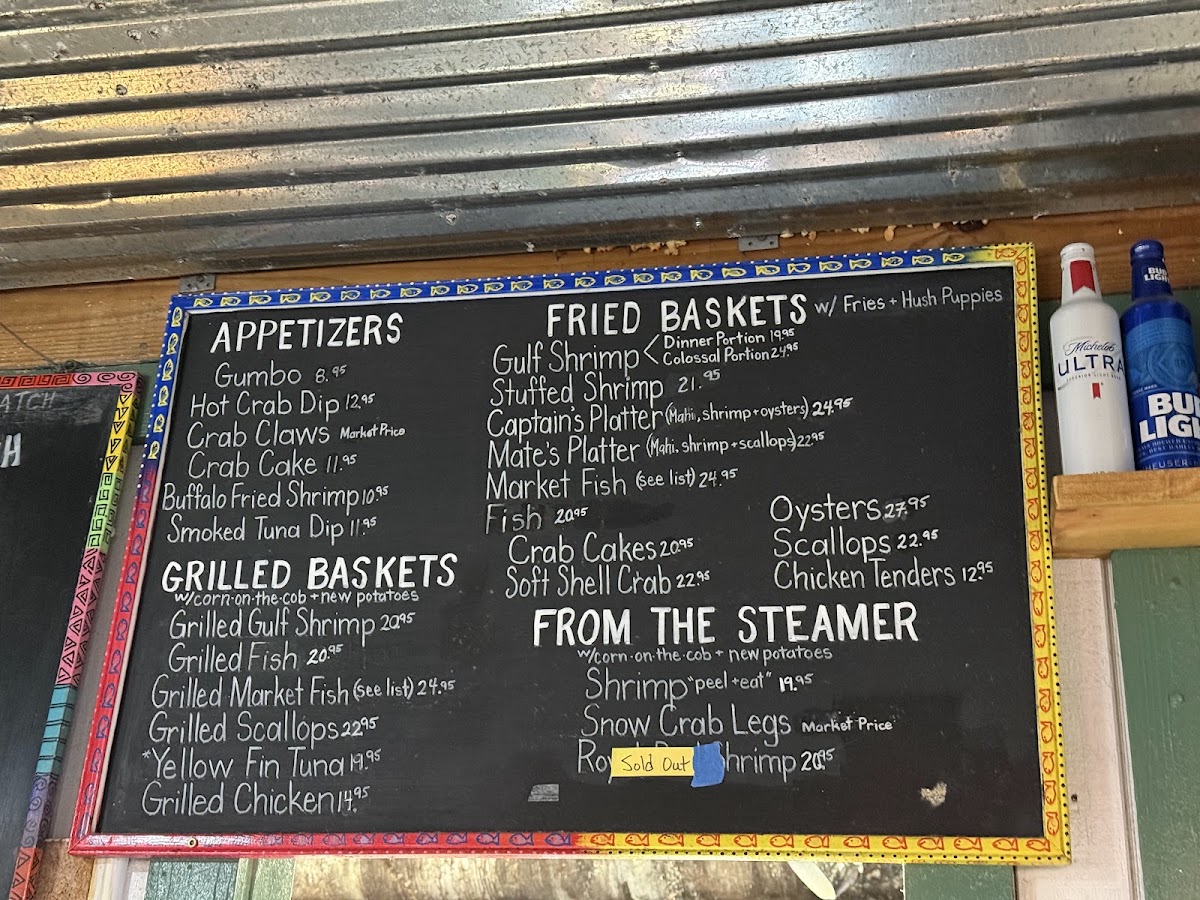 APPETIZERS
Gumbo 8.95
Hot Crab Dip 12.95
Crab Claws Market Price
Crab Cake 11.95
Buffalo Fried Shrimp 10.95
Smoked Tuna Dip 11.95
GRILLED BASKETS
w/corn-on-the-cob + new potatoes
Grilled Gulf Shrimp 20.95
Grilled Fish 20.95
Grilled Market Fish (see list) 24.95
Grilled Scallops 22.95
*Yellow Fin Tuna 19.95
Grilled Chicken 14.95
FRIED BASKETS w/ Fries + Hush Puppies
Gulf Shrimp < Dinner Portion 19.95
Colossal Portion 24.95
Stuffed Shrimp 21.95
Captain's Platter (Mahi, shrimp + oysters) 24.95
Mate's Platter (Mahi, shrimp + scallops) 22.95
Market Fish (see list) 24.95
Fish 20.95
Crab Cakes 20.95
Soft Shell Crab 22.95
Oysters 27.95
Scallops 22.95
Chicken Tenders 12.95
FROM THE STEAMER
w/corn-on-the-cob + new potatoes
Shrimp "peel + eat" 19.95
Snow Crab Legs Market Price
Sold Out Shrimp 20.95
ATCH
H
Michelob
ULTRA
SUPERIOR LIGHT BEER
BUD
LIGHT
BUD
LIGHT